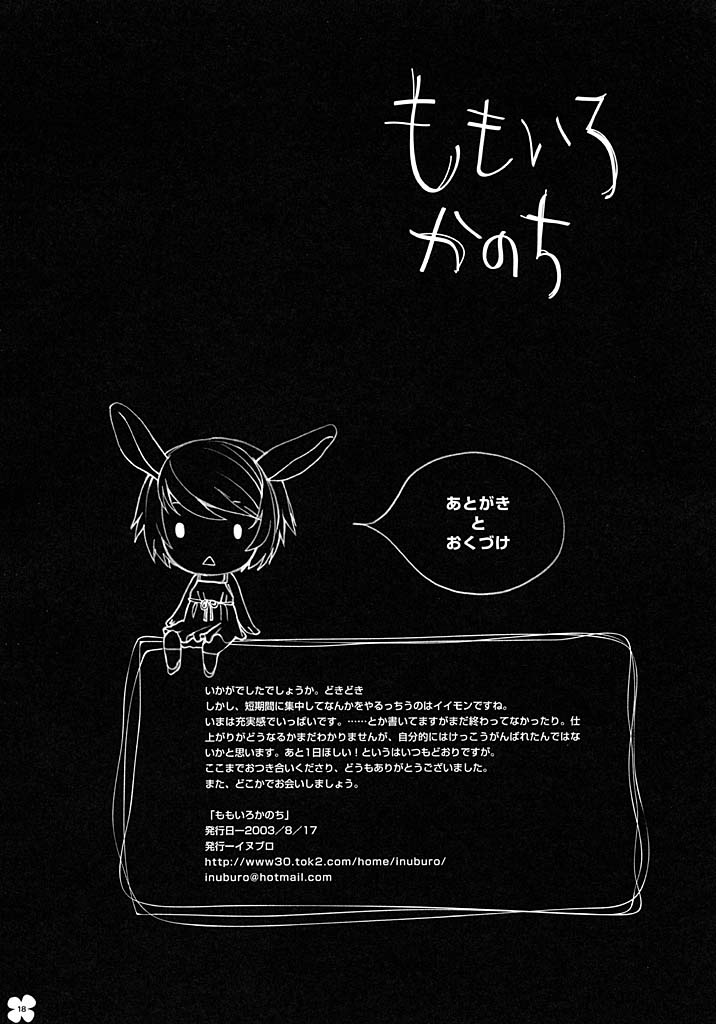 ももいろ
かのち
あとがき
と
おくづけ
いかがでしたでしょうか。どきどき
しかし、短期間に集中してなんかをやるっちうのはイイモンですね。
いまは充実感でいっぱいです。……とか書いてますがまだ終わってなかったり。仕
上がりがどうなるかまだわかりませんが、自分的にはけっこうがんばれたんではな
いかと思います。あと1日ほしい！というはいつもどおりですが。
ここまでおつき合いくださり、どうもありがとうございました。
また、どこかでお会いしましょう。
「ももいろかのち」
発行日ー2003／8／17
発行ーイヌブロ
http://www30.tok2.com/home/inuburo/
inuburo@hotmail.com
18